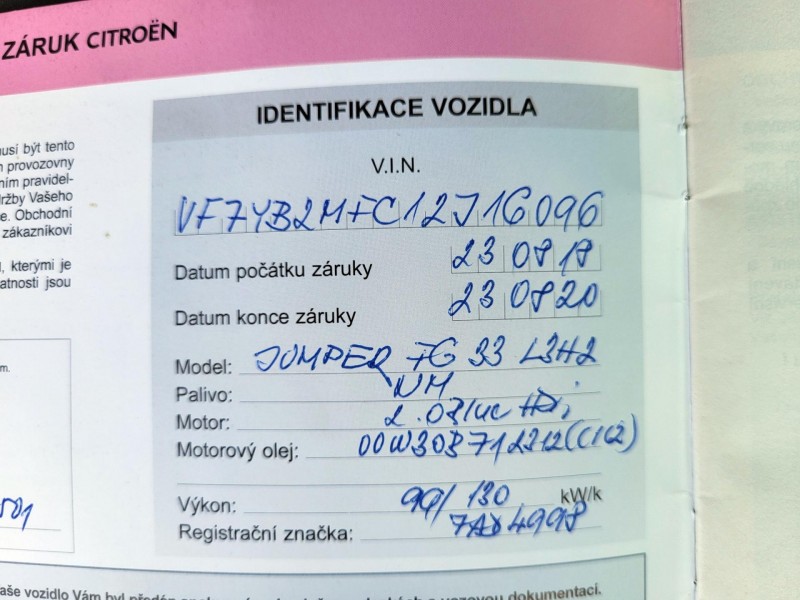 ZÁRUK CITROËN
IDENTIFIKACE VOZIDLA
V.I.N.
VF7YB2MFC12J16096
usí být tento
provozovny
ním pravidel-
držby Vašeho
e. Obchodní
zákazníkovi
, kterými je
atnosti jsou
m.
Datum počátku záruky 23 08 18
Datum konce záruky 23 08 20
Model: JUMPER FG 33 L3H2
Palivo: NM
Motor: 2.0 Blue HDi
Motorový olej: 00W30B712312 (C1C2)
Výkon: 96/130 kW/k
Registrační značka:
501
aše vozidlo Vám byl předán
vozovou dokumentací.